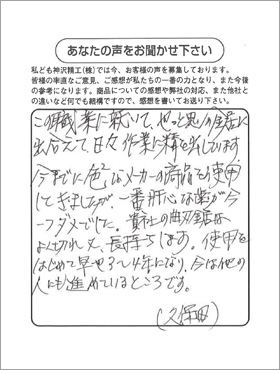 あなたの声をお聞かせ下さい
私ども神沢精工(株)では今、お客様の声を募集しております。
皆様の率直なご意見、ご感想が私たちの一番の力となり、また今後
の参考になります。商品についての感想や弊社の対応、また他社と
の違いなど何でも結構ですので、感想を書いてお送り下さい。
この職業に就いて、やっと思いの鋸に
出会えて、日々作業に精を出しています。
今までに色々なメーカーの商品を使用
してきましたが、一番肝心な歯が今
一つダメでした。貴社の曲刃鋸は
よく切れ、又、長持ちします。使用を
はじめて早や3〜4年になり、今は他の
人にも進めているところです。
(久保田)